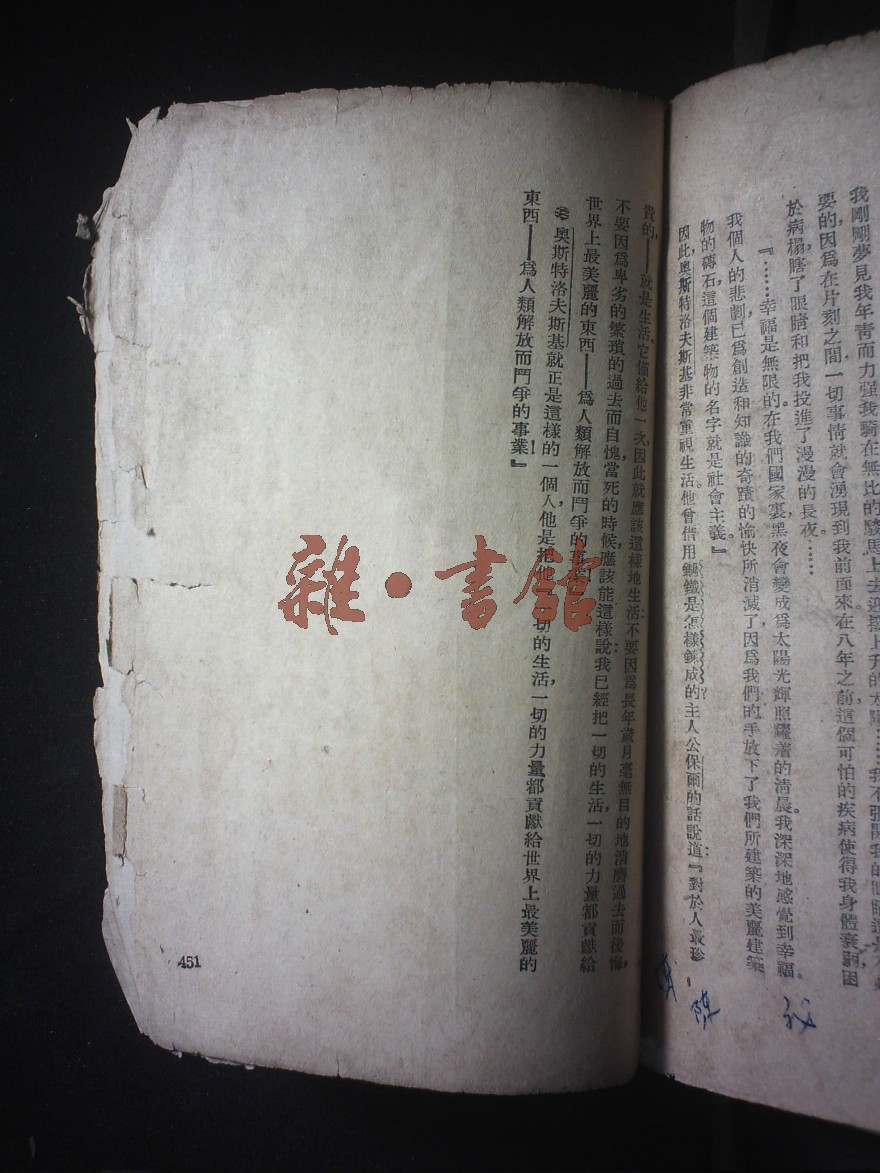 我剛剛夢見我年青而力强我騎在無比的駿馬上去迎接上升的太陽……我不張開我的眼睛
要的因爲在片刻之間一切事情就會湧現到我前面來在八年之前這個可怕的疾病使得我身體衰弱困
於病榻瞎了眼睛和把我投進了漫漫的長夜……
『……幸福是無限的在我們國家裏黑夜會變成爲太陽光輝照耀着的清晨。我深深地感覺到幸福。
我個人的悲劇已爲創造和知識的奇蹟的愉快所消滅了，因爲我們的手放下了我們所建築的美麗建築
物的磚石，這個建築物的名字就是社會主義』
因此，奧斯特洛夫斯基非常重視生活。他曾借用鋼鐵是怎樣鍊成的主人公保爾的話說道：『對於人最珍
貴的，——就是生活。它僅給他一次，因此就應該這樣地生活：不要因爲長年歲月毫無目的地消磨過去而後悔，
不要因爲卑劣的繁瑣的過去而自愧，當死的時候，應該能這樣說：我已經把一切的生活，一切的力量都貢獻給
世界上最美麗的東西——爲人類解放而鬥爭的事
老奧斯特洛夫斯基就正是這樣的一個人，他是把他一切的生活，一切的力量都貢獻給世界上最美麗的
東西——爲人類解放而鬥爭的事業！』
451
陳
雜·書館